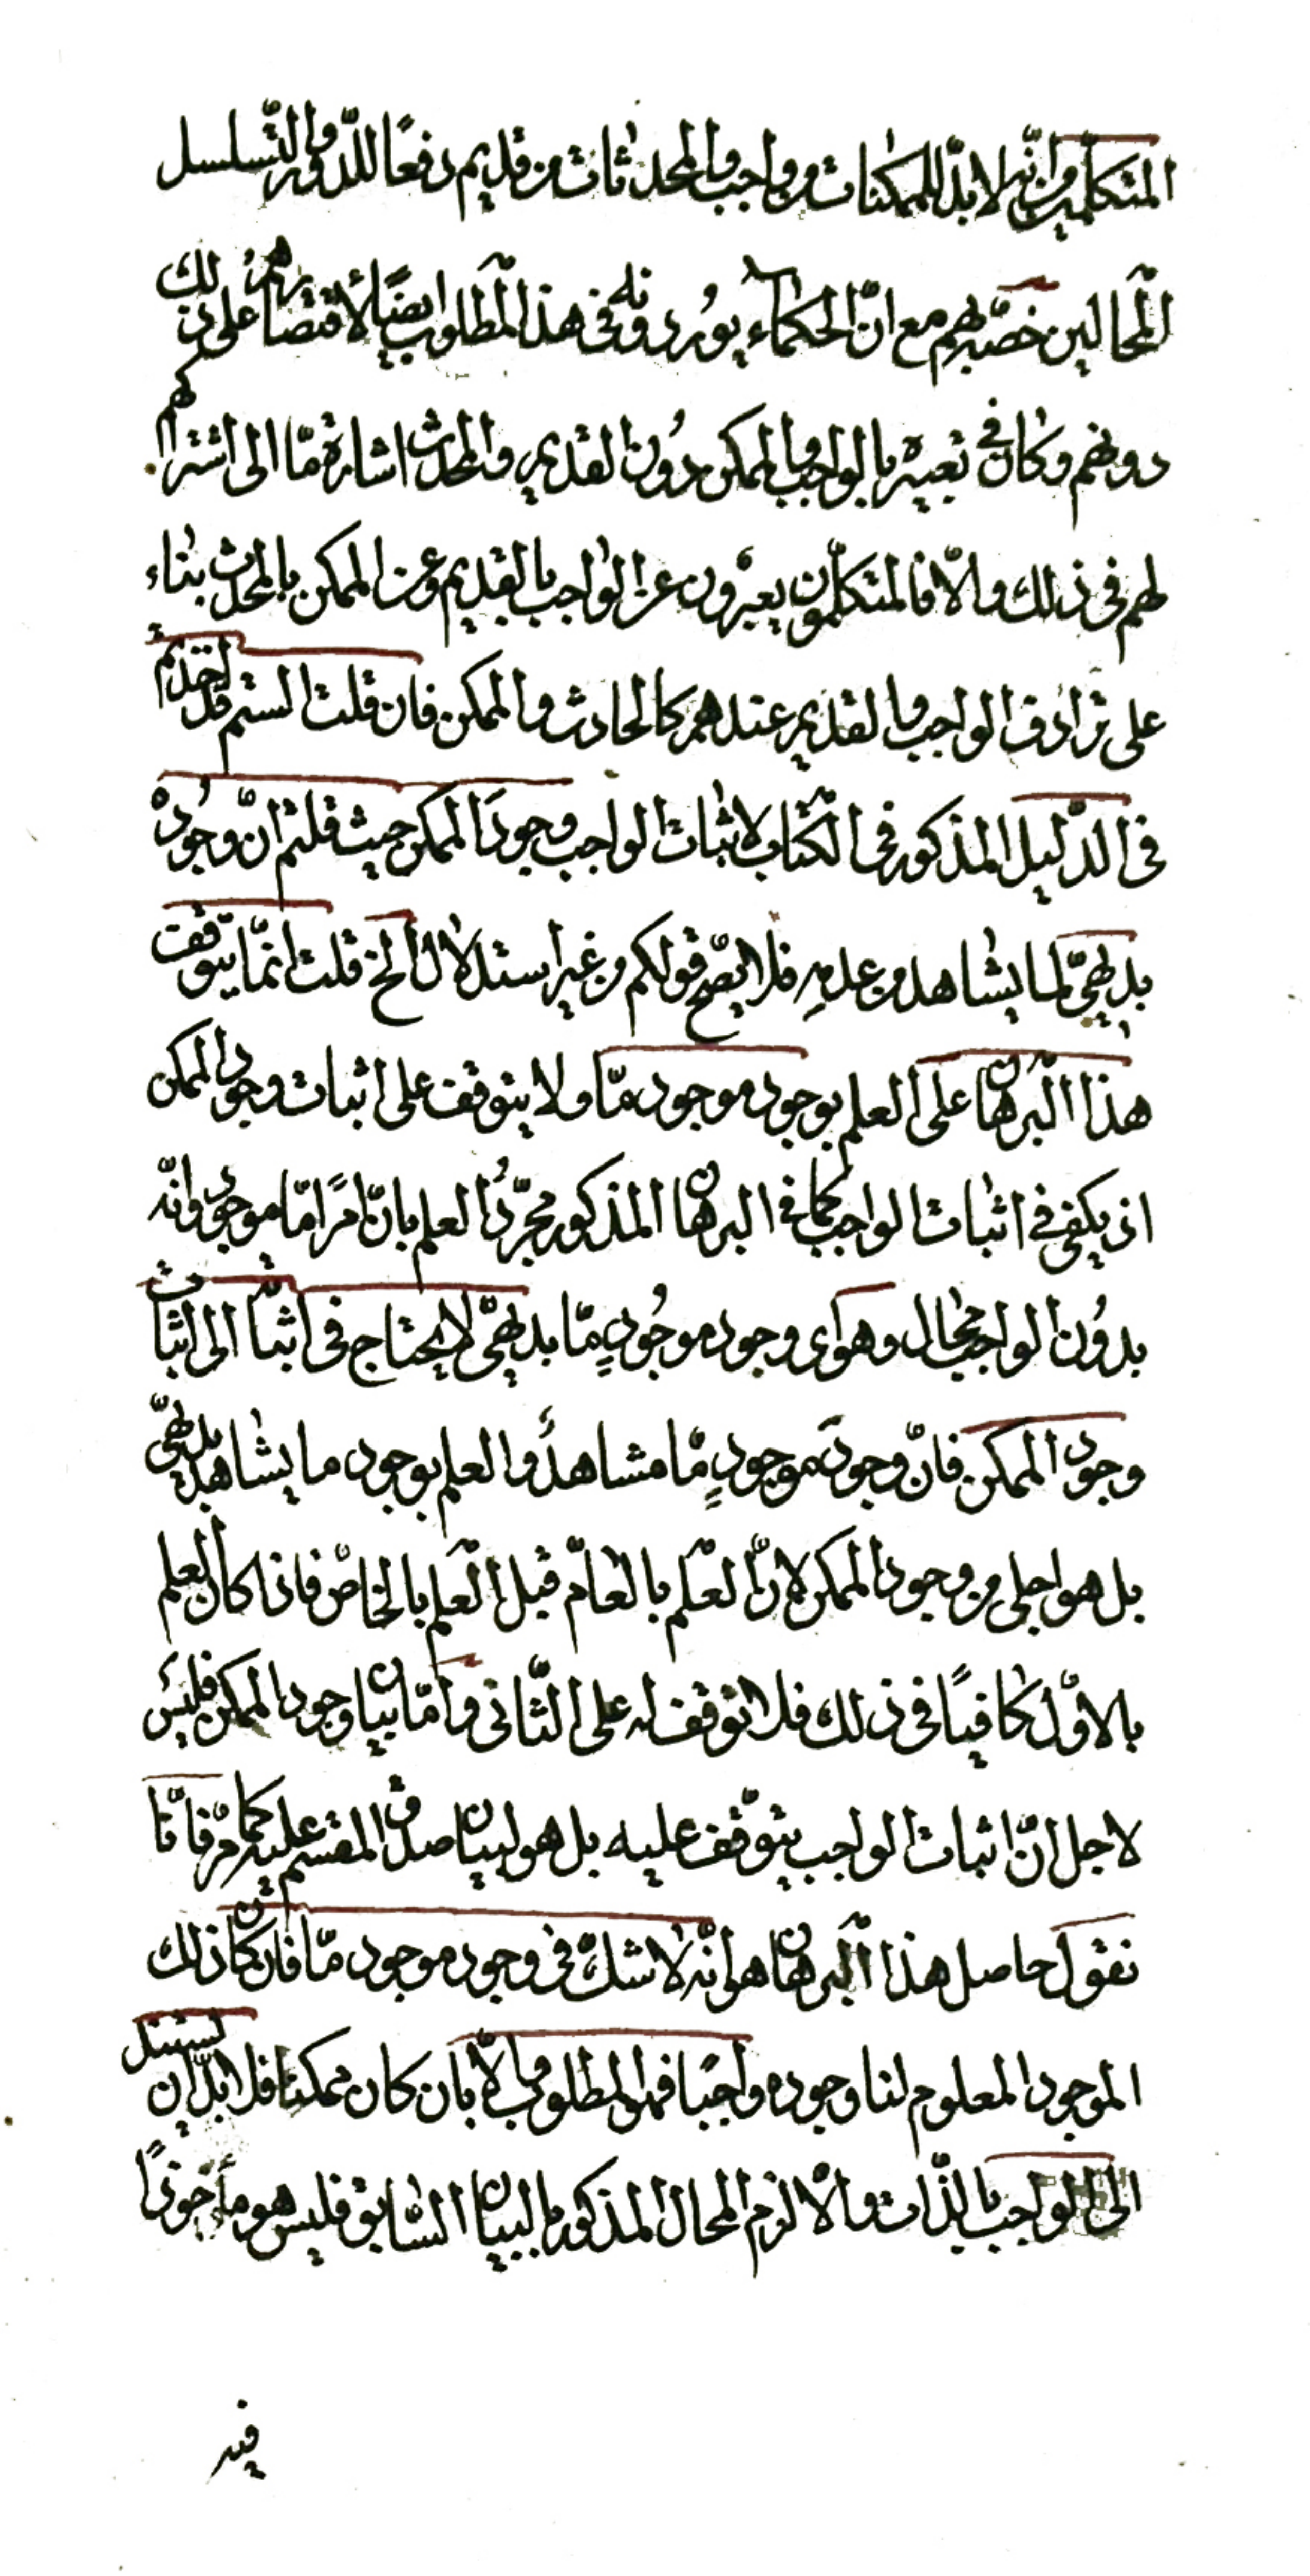 المتكلّمين من انّه لا بدّ للممكنات من واجب والمحدثات من قديم دفعًا للدّور والتّسلسل
المحالين خصّه بهم مع انّ الحكماء يوردونه فى هذا المطلوب ايضًا لأقتصارهم على ذلك
دونهم وكان في تعبيره بالواجب والممكن دُون القديم والمحدث اشارة مّا الى اشتراكهم
لهم فى ذلك والّا فالمتكلّمون يعبّرون عن الواجب بالقديم وعن الممكن بالمحدث بناء
على ترادف الواجب والقديم عندهم كالحادث والممكن فان قلت الستم قد اخذتم
فى الدّليل المذكور فى الكتاب لاثبات الواجب وجودَ الممكن حيث قلتم انّ وجُودهُ
بديهيّ لما يشاهد من عدمه فلا يصّح قولكم من غير استدلال الخ قلت انّما يتوقّف
هذا البرهان على العلم بوجود موجود مّا ولا يتوقف على اثبات وجود الممكن
اذ يكفى في اثبات الواجب كما في البرهان المذكور مجرّدُ العلم بانّ امرًا مّا موجود وانّه
بدُون الواجب محال وهو اى وجود موجُودٍ مّا بديهىّ لا يحتاج فى اثباته الى اثبات
وجود الممكن فانّ وجودَ موجودٍ مّا مشاهدٌ والعلم بوجود ما يشاهد بديهىّ
بل هو اجلى من وجود الممكن لانّ العلم بالعامّ قبل العلم بالخاصّ فاذا كان العلم
بالاوّل كافيًا فى ذلك فلا توقف له على الثّانى وامّا بيان وجود الممكن فليسَ
لاجل انّ اثبات الواجب يتوّقف عليه بل هو لبيان صدق المقسم عليه كما مرّ فانّا
نقول حاصل هذا البرهان هو انّه لا شكّ فى وجود موجود مّا فان كان ذلك
الموجود المعلوم لنا وجوده واجبًا فهو المطلوب والّا بان كان ممكنًا فلا بدّ ان يستند
الى الواجب بالذّات والّا لزم المحال المذكور بالبيان السّابق فليس هو مأخوذًا
فيه